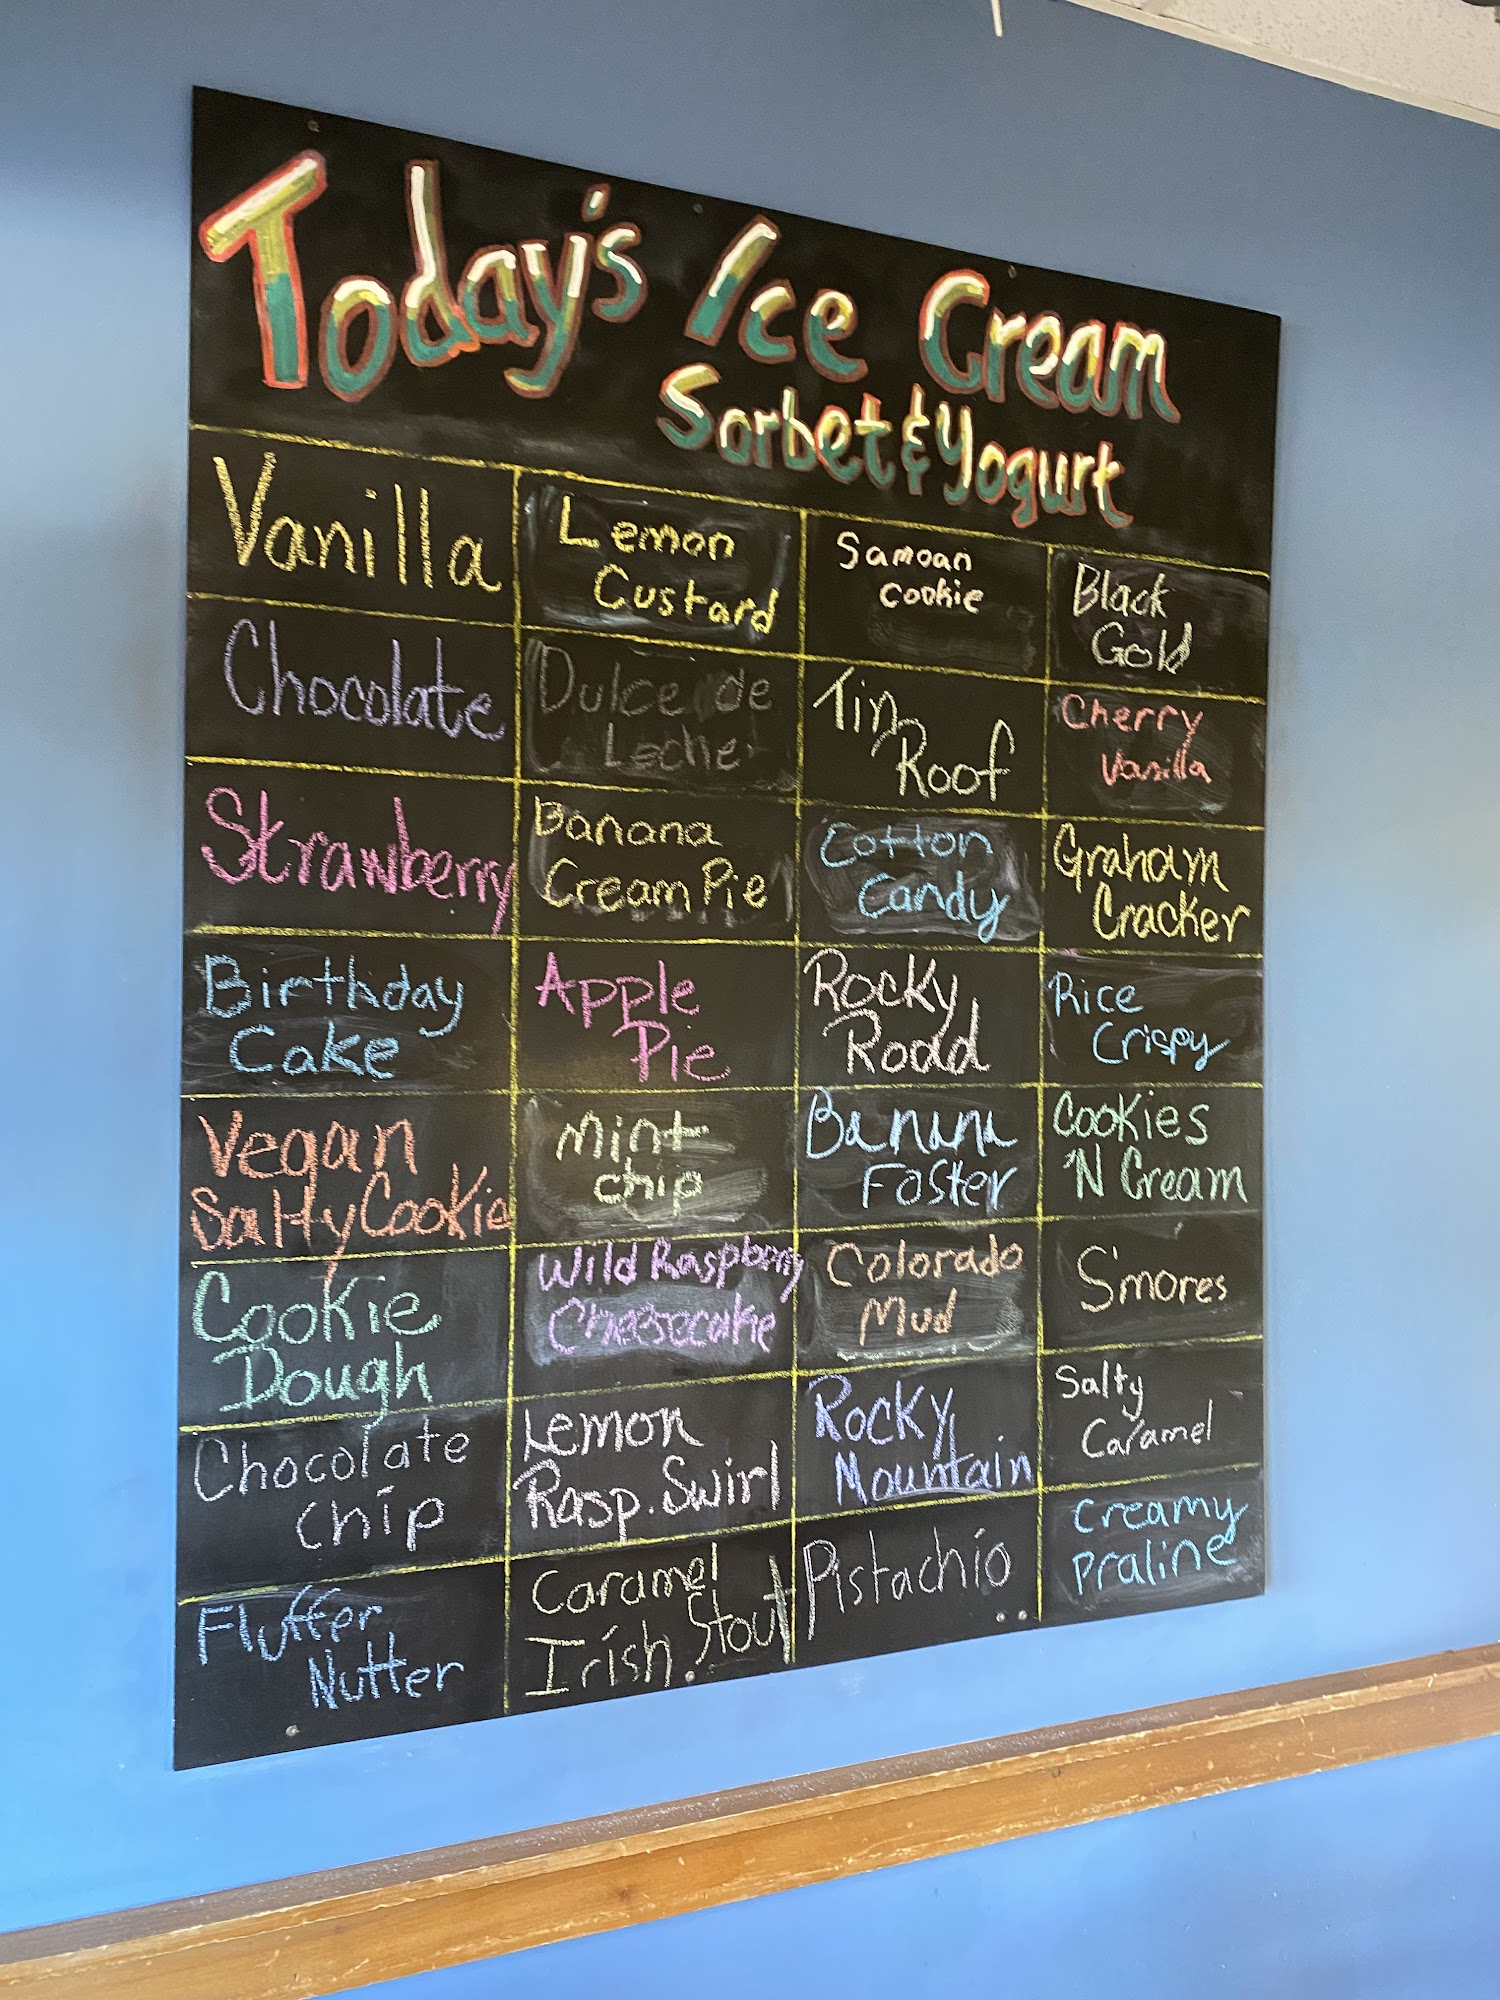 Today's Ice Cream
Sorbet & Yogurt
Vanilla
Chocolate
Strawberry
Birthday
Cake
Vegan
Salty Cookie
Cookie
Dough
Chocolate
chip
Fluffer
Nutter
Lemon
Custard
Dulce de
Leche
Banana
Cream Pie
Apple
Pie
Mint
chip
Wild Raspberry
Cheesecake
Lemon
Rasp. Swirl
Caramel
Irish Stout
Samoan
cookie
Tin
Roof
Cotton
Candy
Rocky
Road
Banana
Foster
Colorado
Mud
Rocky
Mountain
Pistachio
Black
Gold
Cherry
Vanilla
Graham
Cracker
Rice
Crispy
Cookies
'N Cream
S'mores
Salty
Caramel
Creamy
Praline